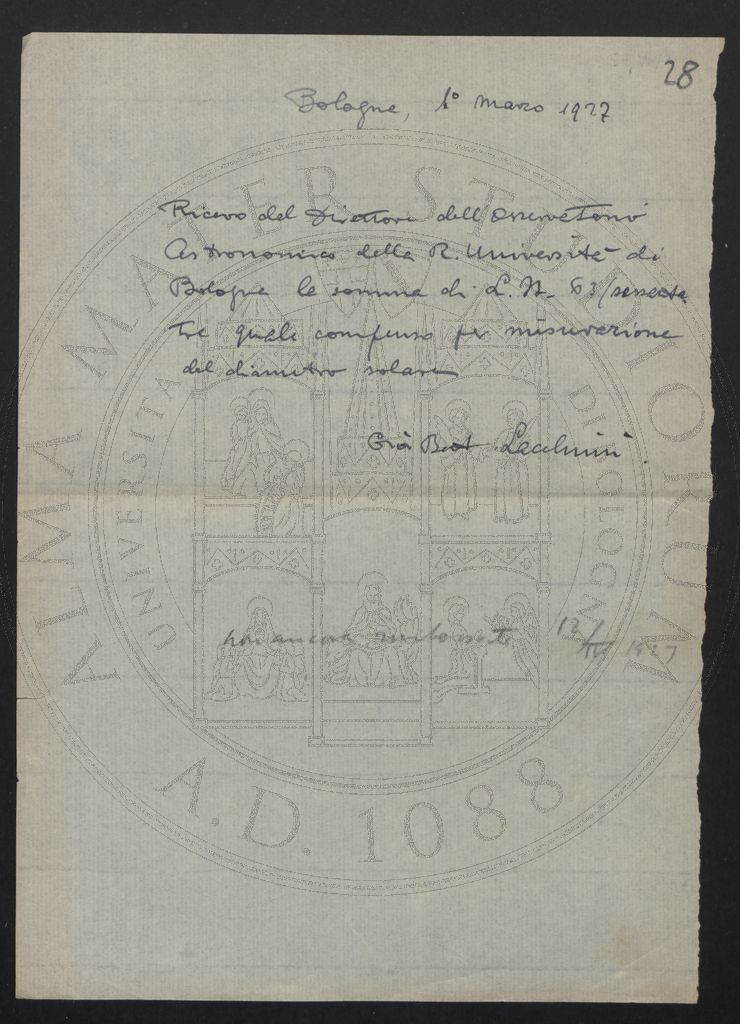 28
Bologna, 1º marzo 1927
Ricevo dal Direttore dell'Osservatorio
Astronomico della R. Università di
Bologna la somma di L. N. 63/sessanta
tre quale compenso per misurazione
del diametro solare
Gio Batt Lacchini.
non ancora rimborsate 12/IV 1927
ALMA MATER STUDIORUM
UNIVERSITÀ DI BOLOGNA
A.D. 1088